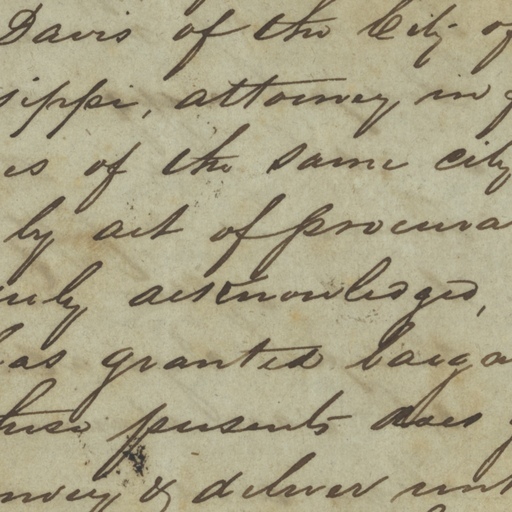 Davis of the City of
sippi, attorney in f
es of the same city
by act of procura
uly acknowledged,
has granted barga
these presents does g
nvey & deliver unt